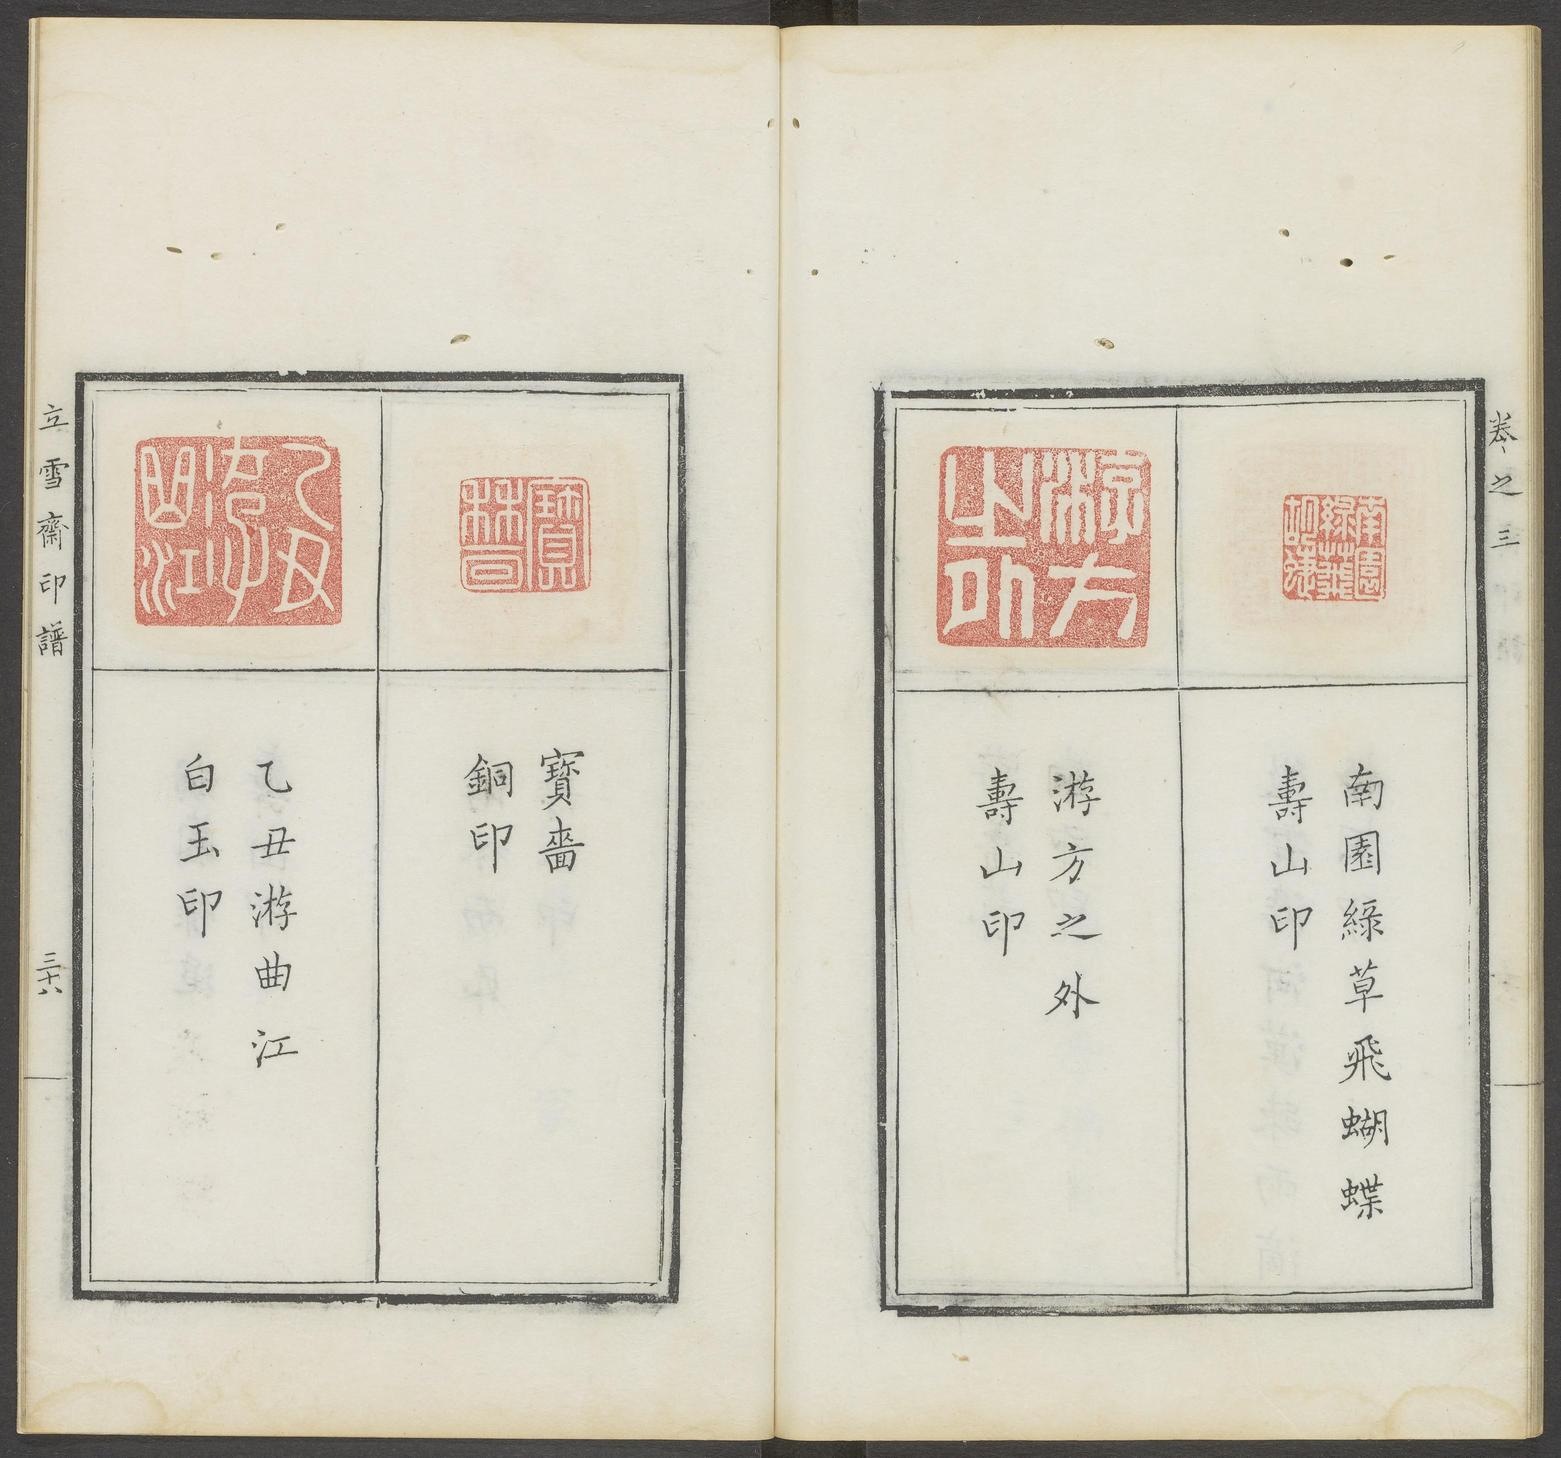 卷之三
南園綠草飛蝴蝶
壽山印
游方之外
壽山印
寳嗇
銅印
乙丑游曲江
白玉印
立雪齋印譜
三十八